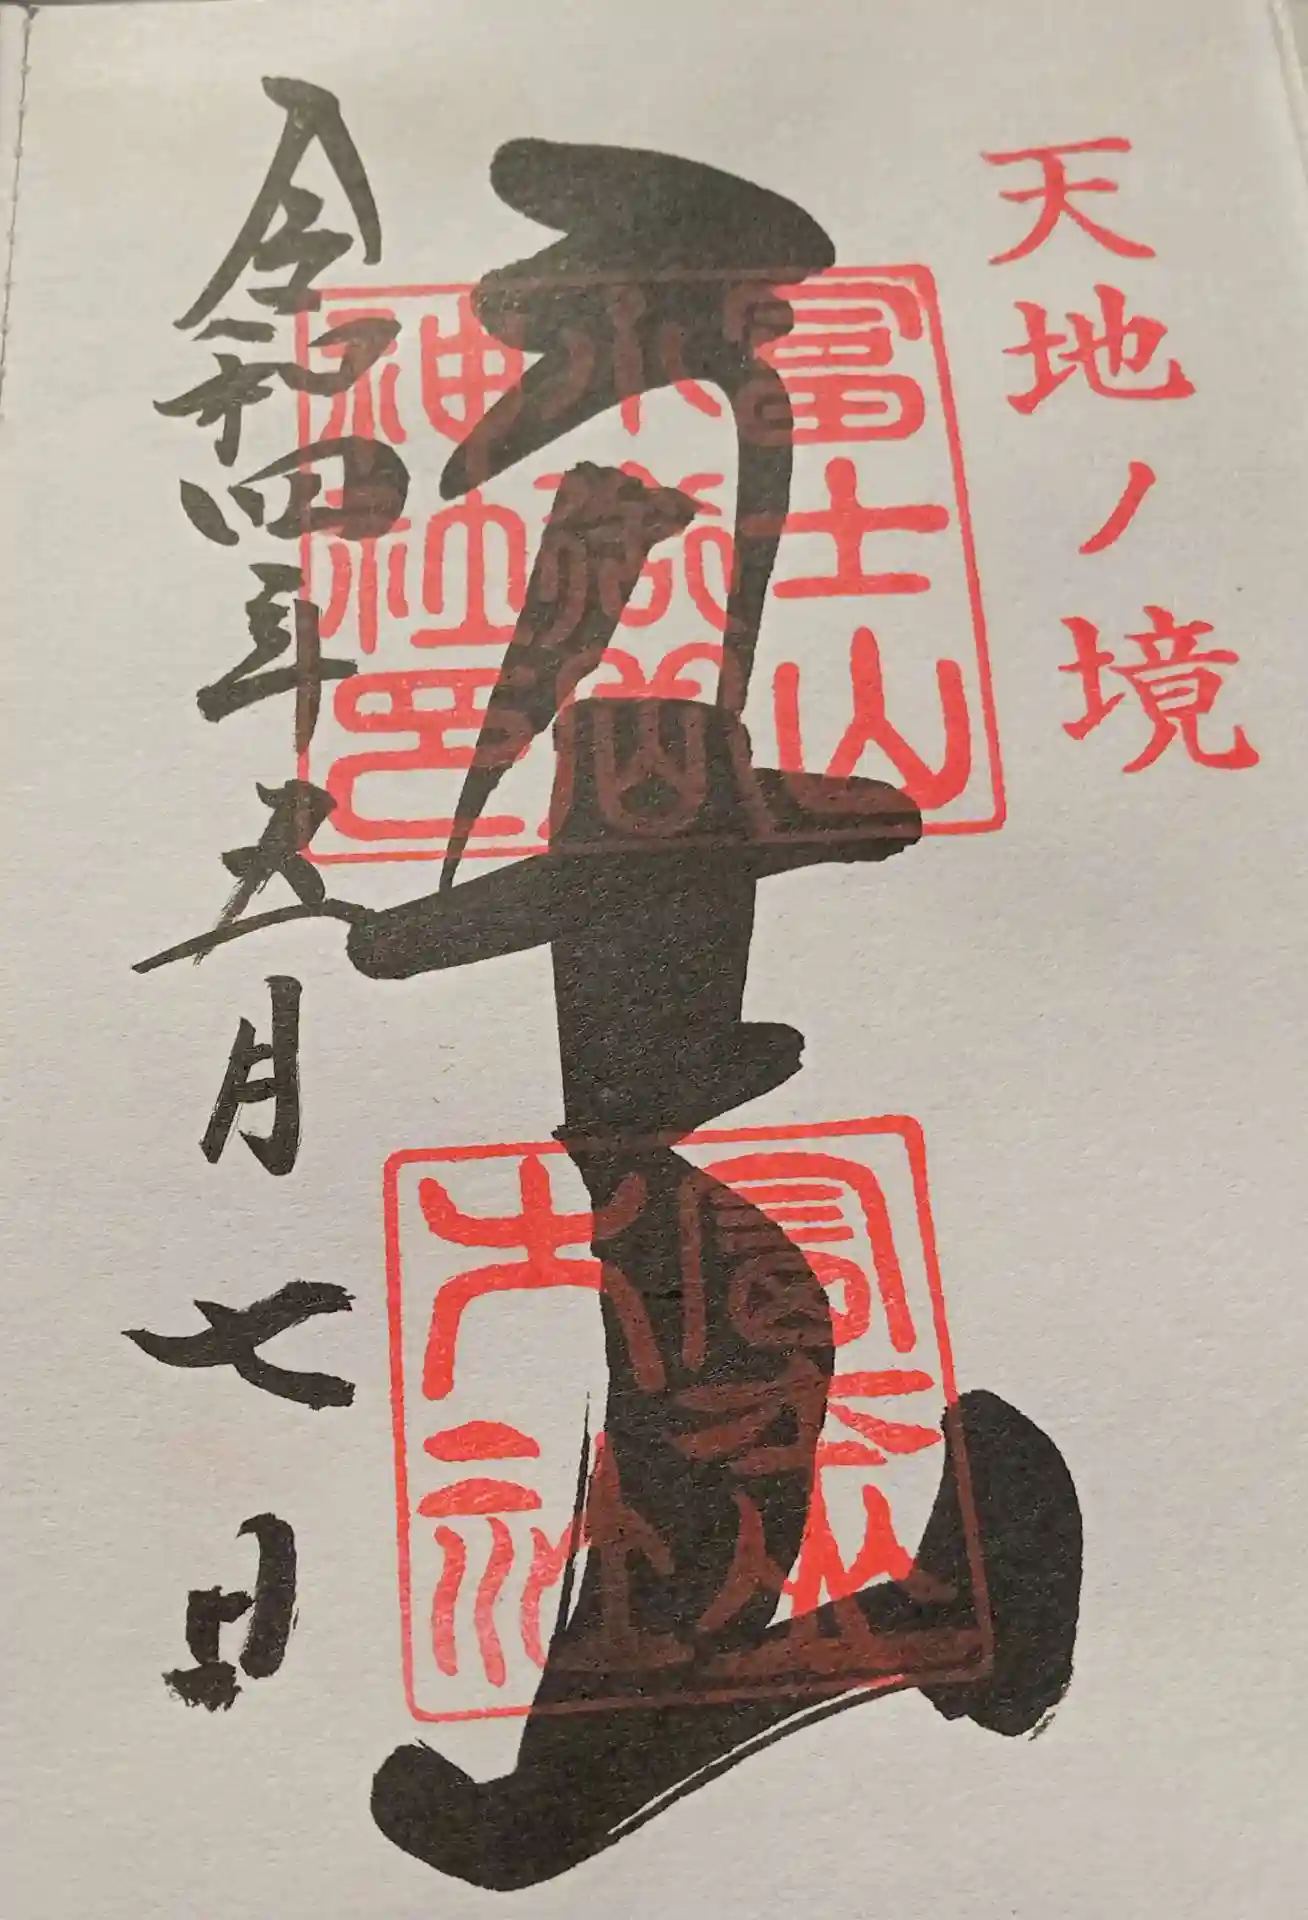 天地ノ境
冨士山
冨士山
小御嶽
神社印
令和四年五月七日